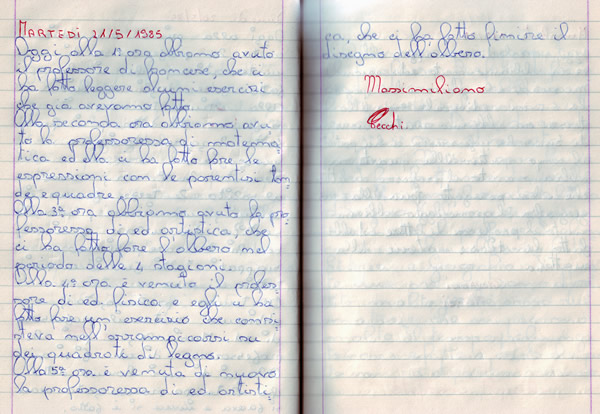 MARTEDÌ 21/5/1985
Oggi alla 1ª ora abbiamo avuto
il professore di francese, che ci
ha fatto leggere alcuni esercizi
che già avevamo fatto.
Alla seconda ora abbiamo avu-
to la professoressa di matema-
tica ed ella ci ha fatto fare le
espressioni con le parentisi ton-
de e quadre.
Alla 3ª ora abbiamo avuto la pro-
fessoressa di ed artistica, che
ci ha fatto fare l'albero nel
periodo delle 4 stagioni.
Alla 4ª ora è venuto il profes-
sore di ed. fisica e egli ci ha
fatto fare un'esercizio che consi-
steva nell'arrampicarsi su
dei quadrati di legno.
Alla 5ª ora è venuta di nuovo
la professoressa di ed artisti-
ca, che ci ha fatto finire il
disegno dell'albero.
Massimiliano
Cecchi.